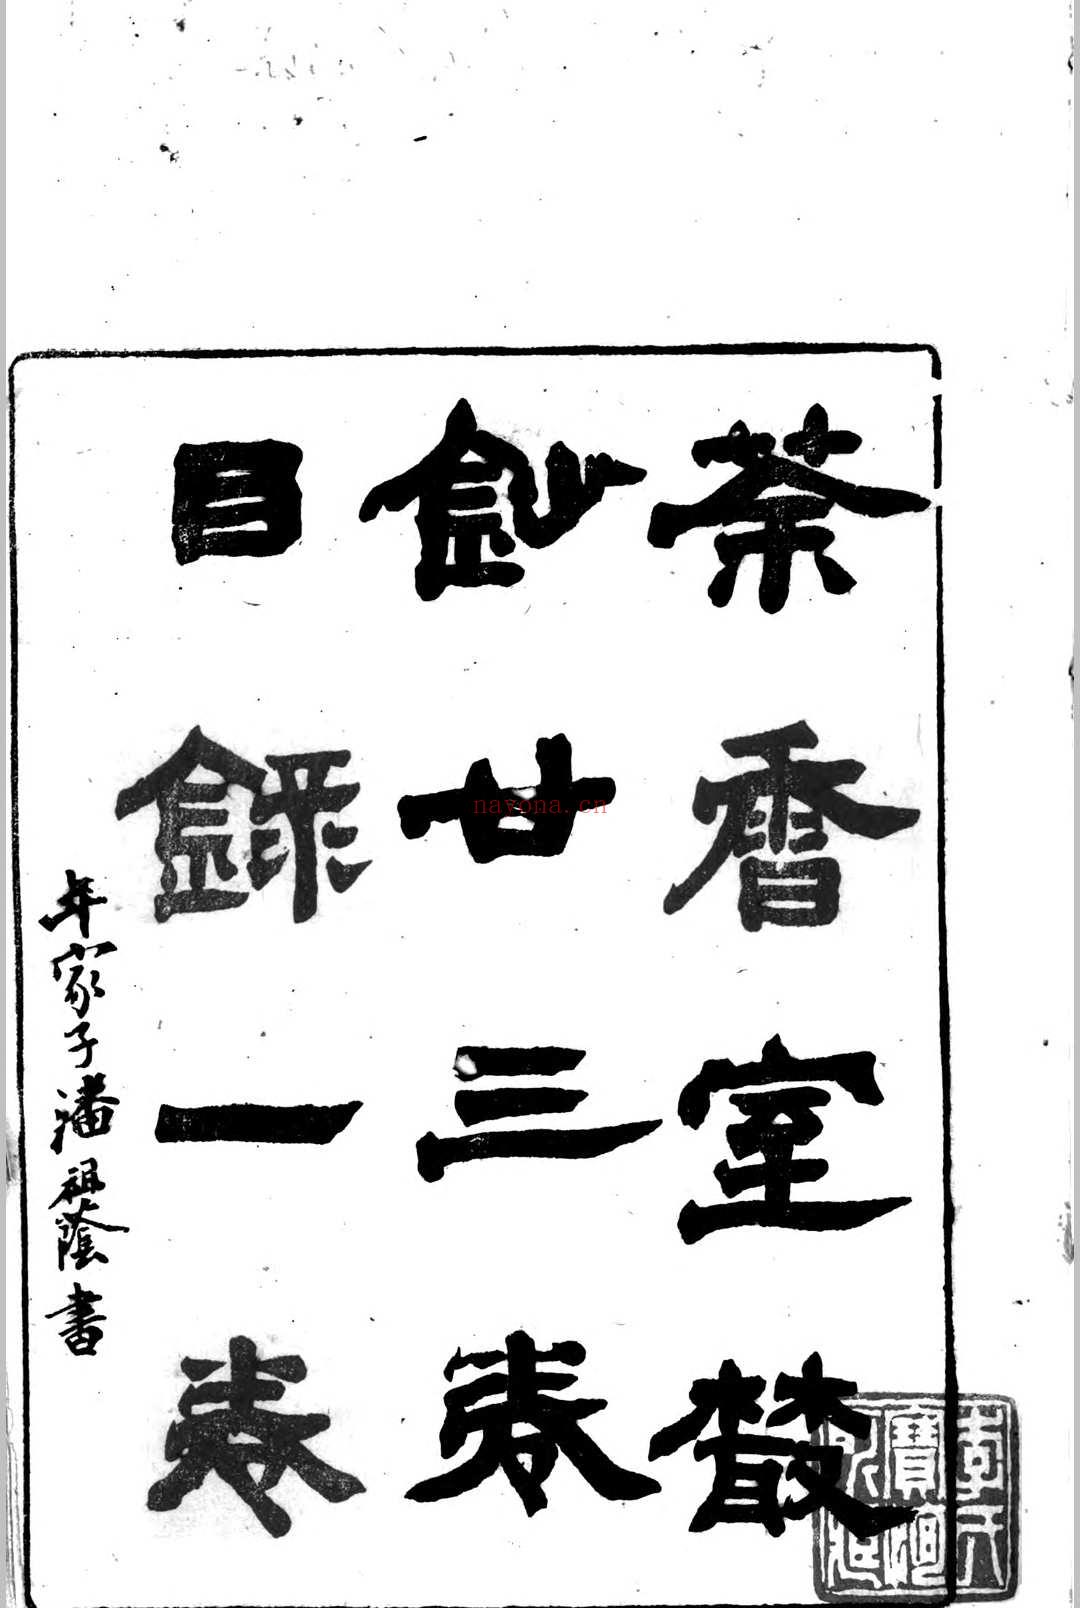 茶香室叢
鈔廿三卷
目錄一卷
年家子潘祖蔭書
nayona.cn